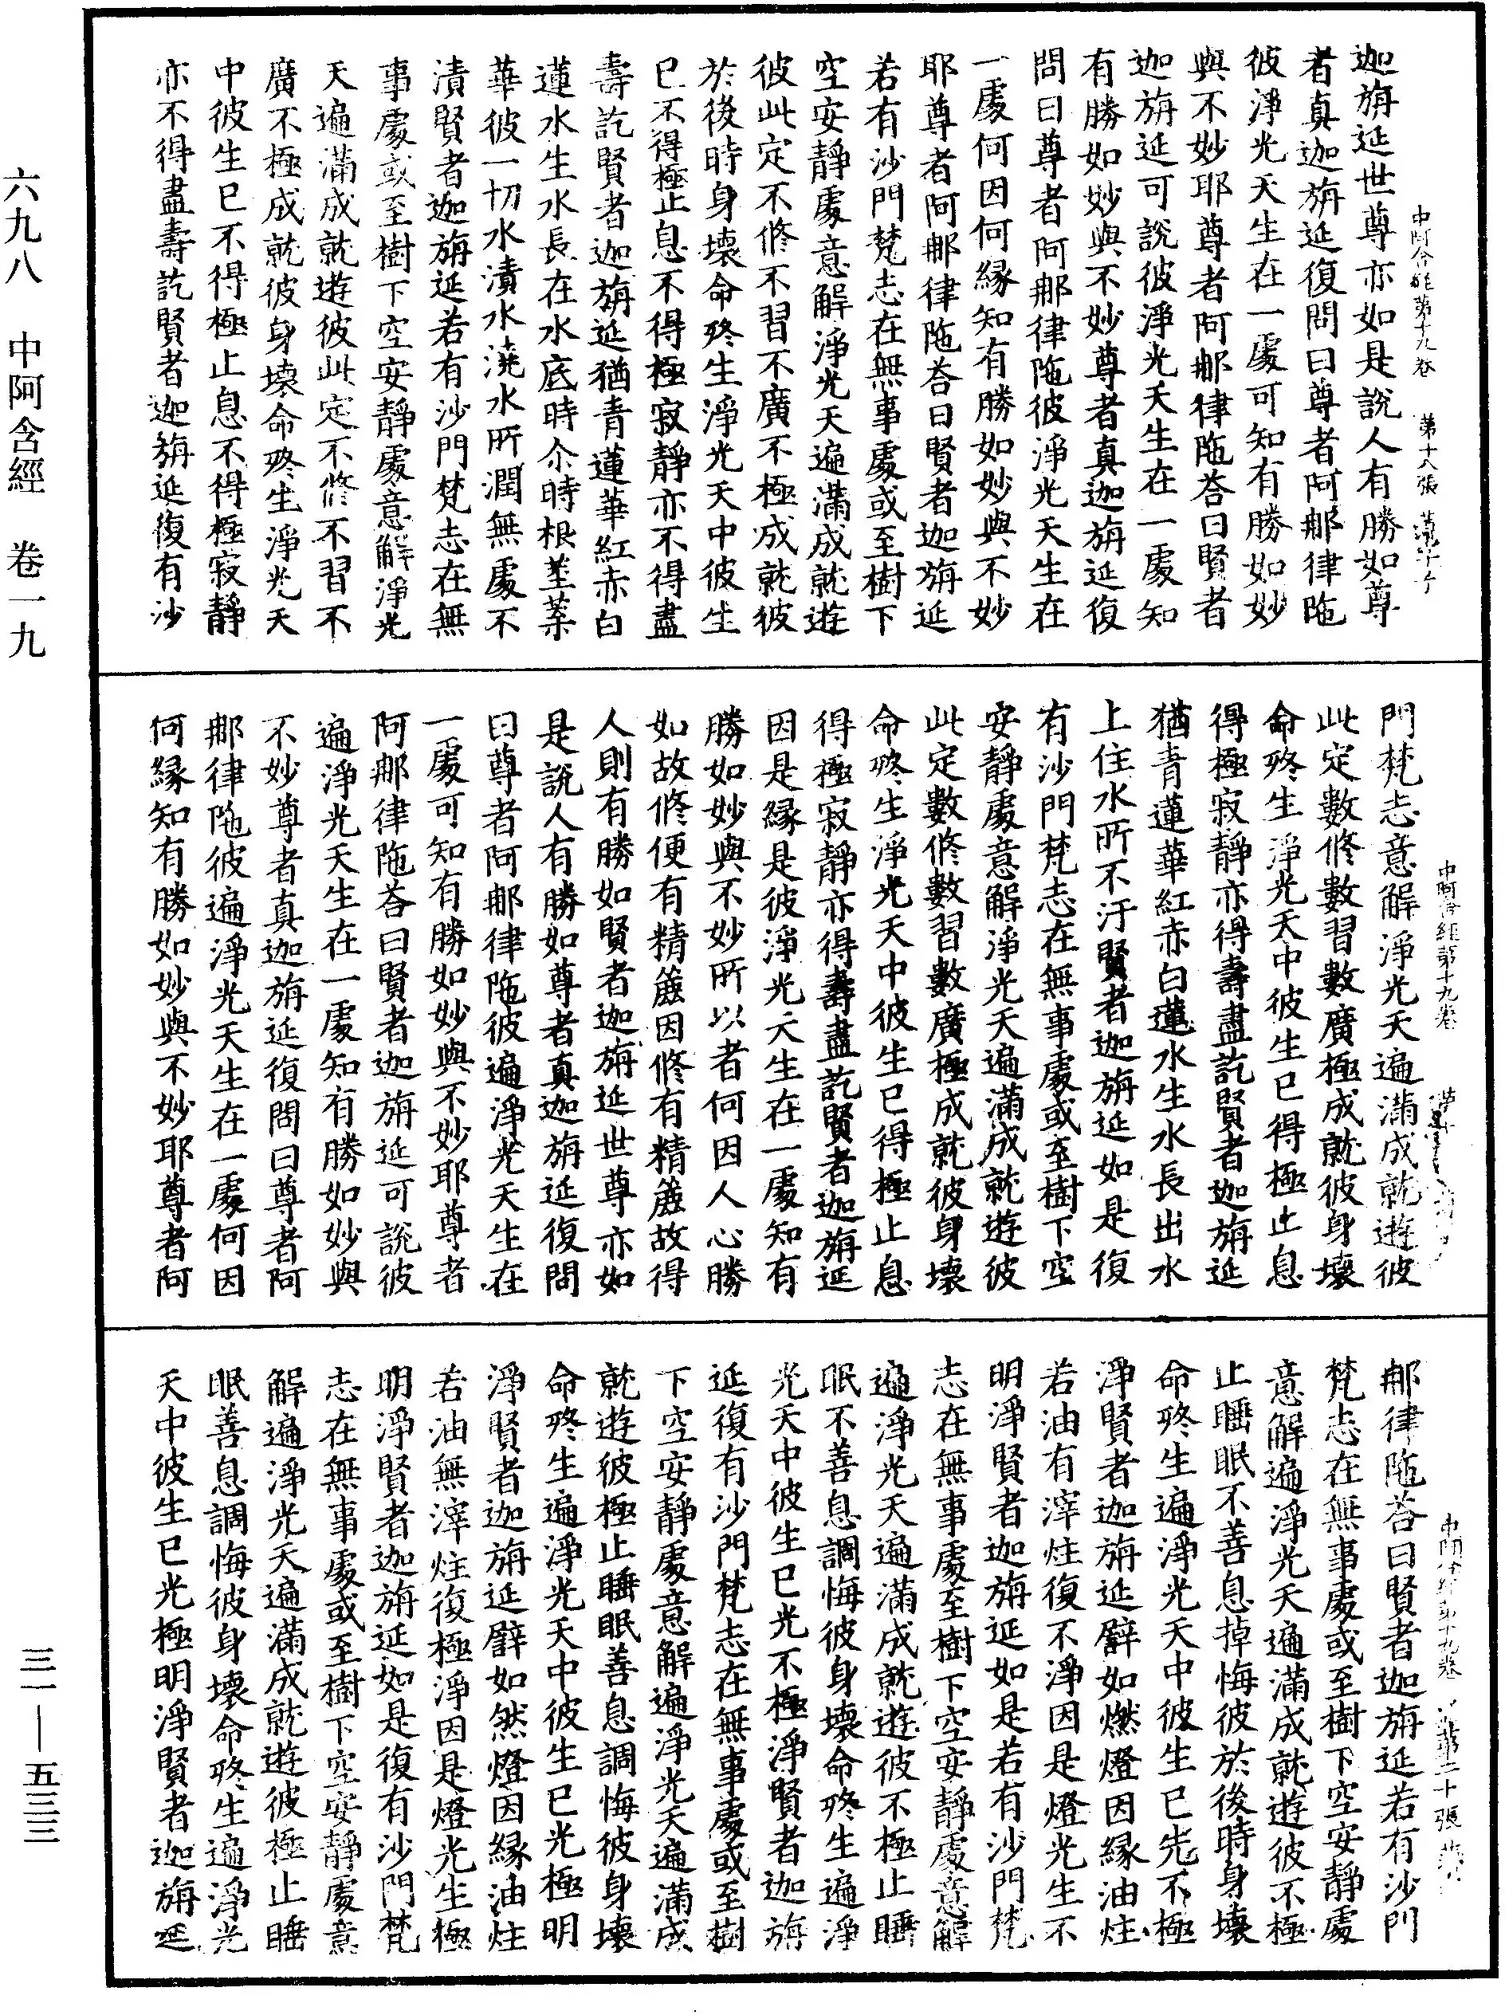 迦旃延世尊亦如是說人有勝如尊
者真迦旃延復問曰尊者阿那律陁
彼淨光天生在一處可知有勝如妙
與不妙耶尊者阿那律陁荅曰賢者
迦旃延可說彼淨光天生在一處知
有勝如妙與不妙尊者真迦旃延復
問曰尊者阿那律陁彼淨光天生在
一處何因何緣知有勝如妙與不妙
耶尊者阿那律陁荅曰賢者迦旃延
若有沙門梵志在無事處或至樹下
空安靜處意解淨光天遍滿成就遊
彼此定不修不習不廣不極成就彼
於後時身壞命終生淨光天中彼生
已不得極止息不得極寂靜亦不得盡
壽訖賢者迦旃延猶青蓮華紅赤白
蓮水生水長在水底時尒時根莖葉
華彼一切水漬水澆水所潤無處不
漬賢者迦旃延若有沙門梵志在無
事處或至樹下空安靜處意解淨光
天遍滿成就遊彼此定不修不習不
廣不極成就彼身壞命終生淨光天
中彼生已不得極止息不得極寂靜
亦不得盡壽訖賢者迦旃延復有沙
中阿含經第十九卷 第十八張
門梵志意解淨光天遍滿成就遊彼
此定數修數習數廣極成就彼身壞
命終生淨光天中彼生已得極止息
得極寂靜亦得壽盡訖賢者迦旃延
猶青蓮華紅赤白蓮水生水長出水
上住水所不汙賢者迦旃延如是復
有沙門梵志在無事處或至樹下空
安靜處意解淨光天遍滿成就遊彼
此定數修數習數廣極成就彼身壞
命終生淨光天中彼生已得極止息
得極寂靜亦得壽盡訖賢者迦旃延
因是緣是彼淨光天生在一處知有
勝如妙與不妙所以者何因人心勝
如故修便有精麁因修有精麁故得
人則有勝如賢者迦旃延世尊亦如
是說人有勝如尊者真迦旃延復問
曰尊者阿那律陁彼遍淨光天生在
一處可知有勝如妙與不妙耶尊者
阿那律陁荅曰賢者迦旃延可說彼
遍淨光天生在一處知有勝如妙與
不妙尊者真迦旃延復問曰尊者阿
那律陁彼遍淨光天生在一處何因
何緣知有勝如妙與不妙耶尊者阿
中阿含經第十九卷
那律陁荅曰賢者迦旃延若有沙門
梵志在無事處或至樹下空安靜處
意解遍淨光天遍滿成就遊彼不極
止睡眠不善息掉悔彼於後時身壞
命終生遍淨光天中彼生已光不極
淨賢者迦旃延譬如燃燈因緣油炷
若油有滓炷復不淨因是燈光生不
明淨賢者迦旃延如是若有沙門梵
志在無事處至樹下空安靜處意解
遍淨光天遍滿成就遊彼不極止睡
眠不善息調悔彼身壞命終生遍淨
光天中彼生已光不極淨賢者迦旃
延復有沙門梵志在無事處或至樹
下空安靜處意解遍淨光天遍滿成
就遊彼極止睡眠善息調悔彼身壞
命終生遍淨光天中彼生已光極明
淨賢者迦旃延譬如然燈因緣油炷
若油無滓炷復極淨因是燈光生極
明淨賢者迦旃延如是復有沙門梵
志在無事處或至樹下空安靜處意
解遍淨光天遍滿成就遊彼極止睡
眠善息調悔彼身壞命終生遍淨光
天中彼生已光極明淨賢者迦旃延
中阿含經第十九卷 第二十張
六九八 中阿含經 卷一九
三一—五三三